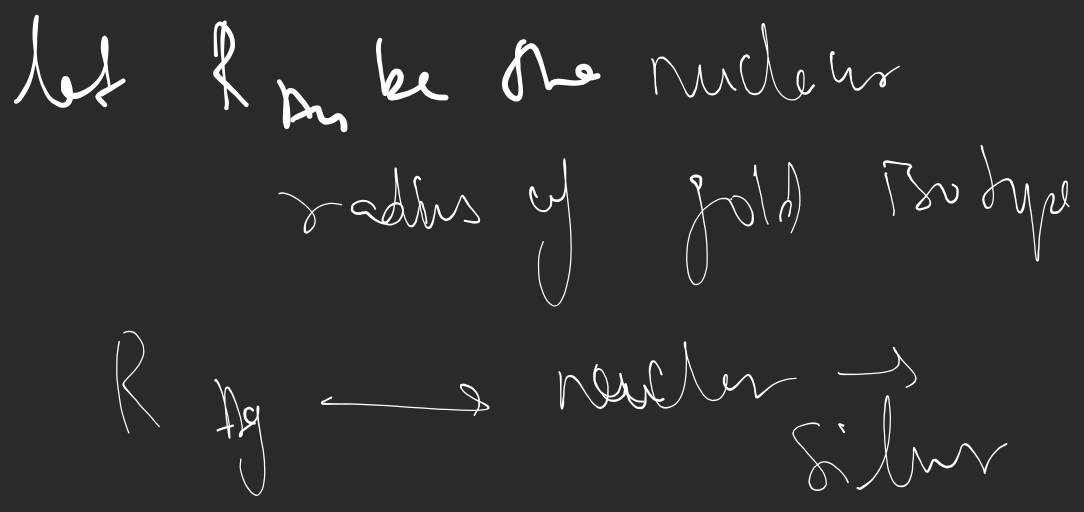 let R Au be the nuclear
radius of gold isotope
R Ag → nuclear →
silver